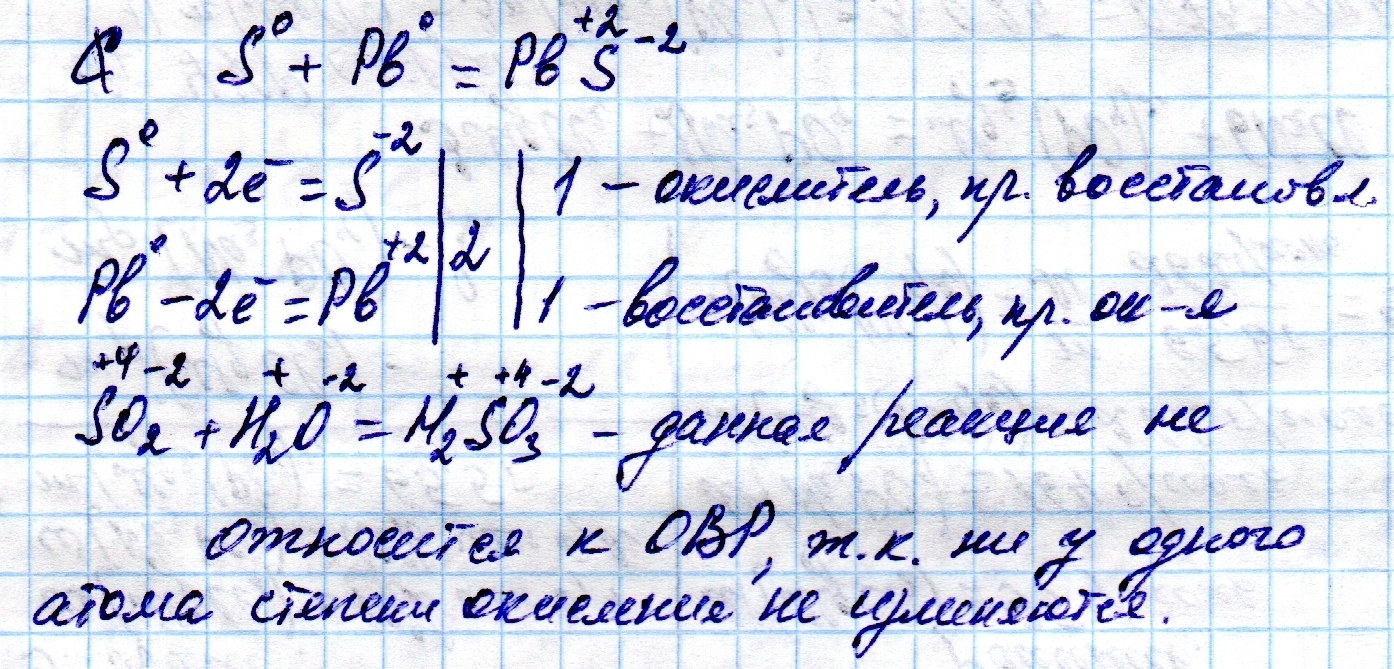 S⁰ + Pb⁰ = Pb⁺²S⁻²
S⁰ + 2ē = S⁻² | | 1 – окислитель, пр. восстановл.
2
Pb⁰ – 2ē = Pb⁺² | | 1 – восстановитель, пр. ок-я
+4 -2 + -2 + +4 -2
SO₂ + H₂O = H₂SO₃ – данная реакция не
относится к ОВР, т.к. ни у одного
атома степени окисления не изменяются.